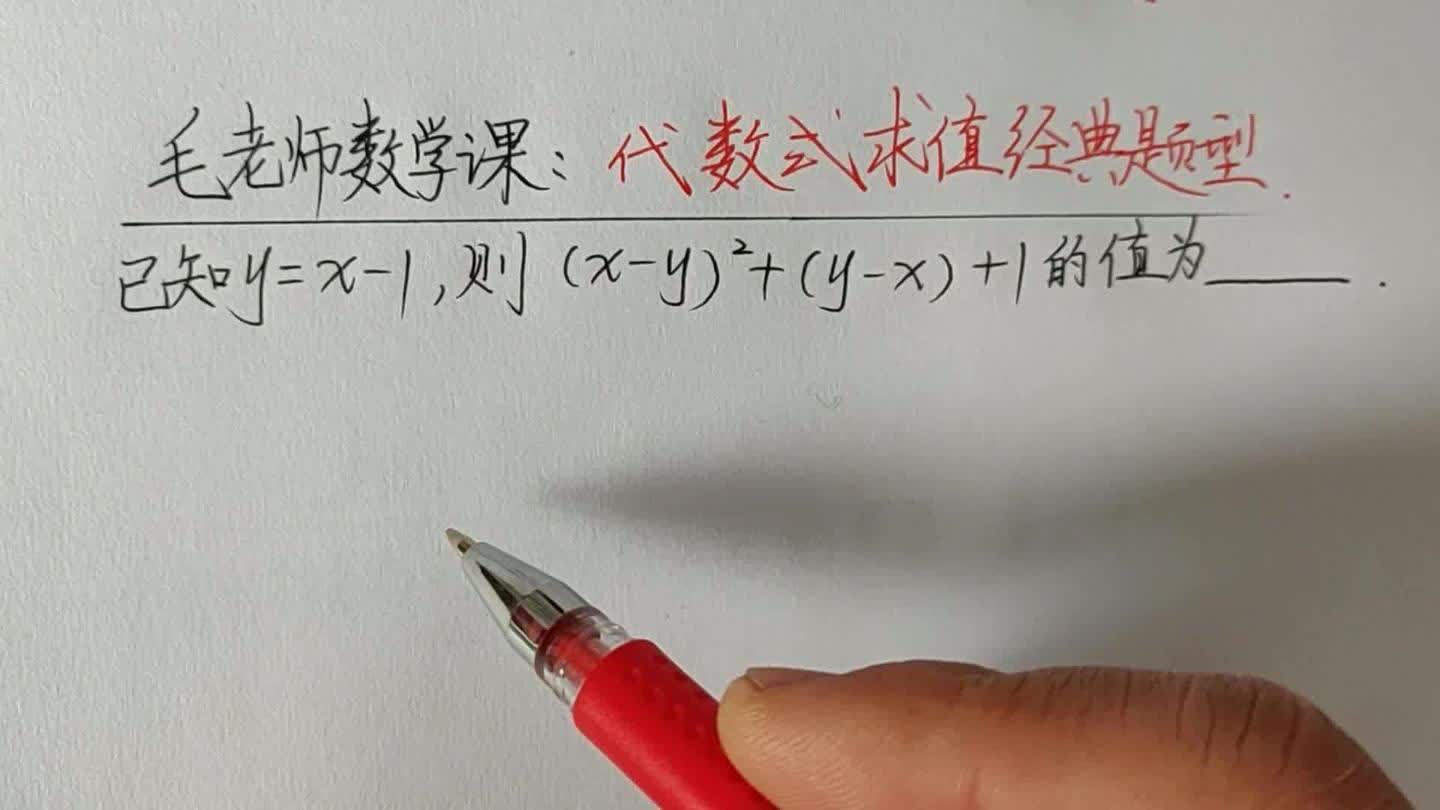 毛老师数学课：代数式求值经典题型.
已知y=x-1,则(x-y)²+(y-x)+1的值为____.